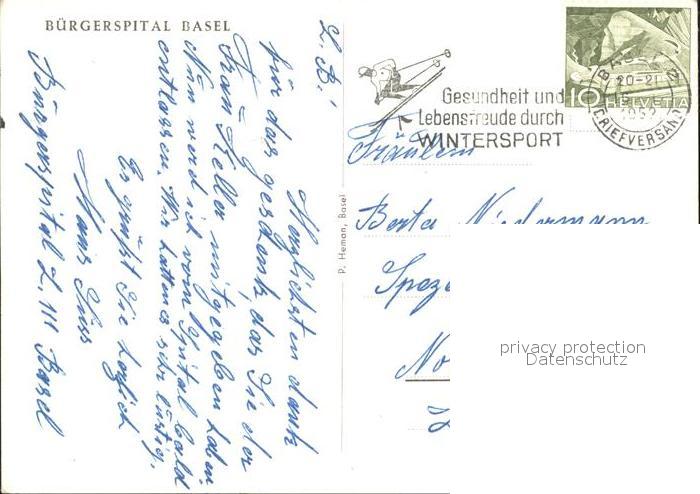 BÜRGERSPITAL BASEL
L. B.!
Herzlichsten Dank
für das Geschenk, das Sie der
Fräulein Keller mitgegeben haben.
Nun werd ich vom Spital bald
entlassen. Wir hatten es sehr lustig.
Es grüßt Sie herzlich
Süss
Bürgerspital Z. 111 Basel
P. Heman, Basel
Gesundheit und
Lebensfreude durch
WINTERSPORT
BASEL 2
20-21
1952
BRIEFVERSAND
10 HELVETIA
Fräulein
Berta Niedermann
Speze
No
privacy protection
Datenschutz